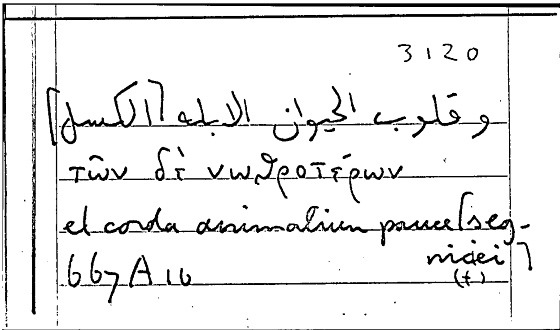 3120
و قلوب الحيوان الابله [الكسل]
τῶν δὲ νωθροτέρων
et corda animalium pauce [seg-
niciei]
(t)
667 A 10